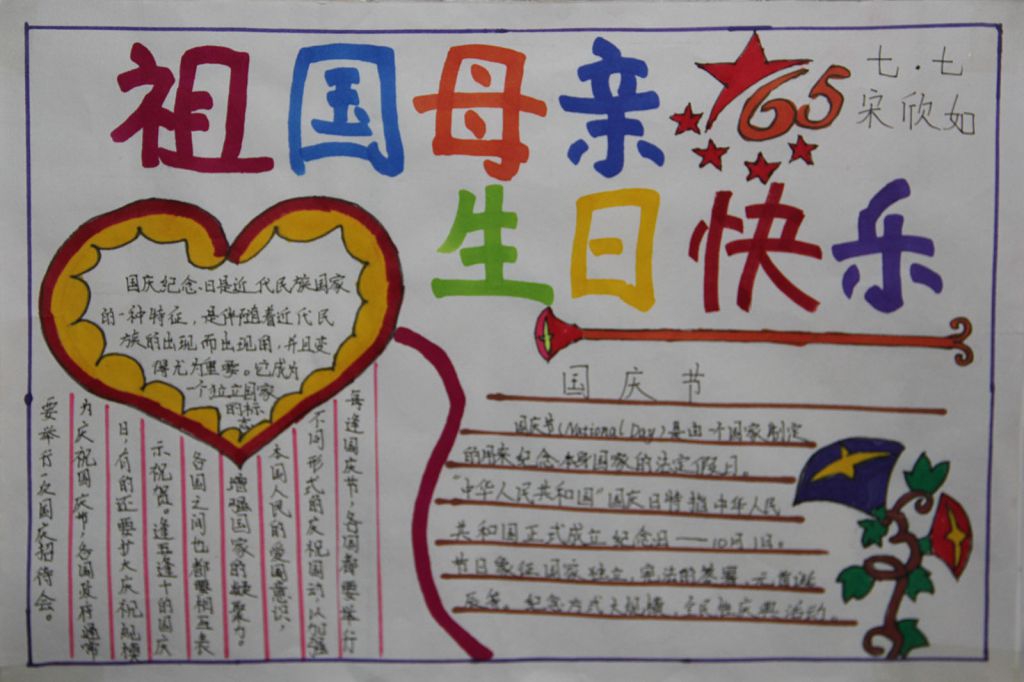 祖国母亲
65
七.七
宋欣如
生日快乐
国庆纪念日是近代民族国家
的一种特征，是伴随着近代民
族的出现而出现的，并且变
得尤为重要。它成为
一个独立国家
的标
志
每逢国庆节，各国都要举行
不同形式的庆祝活动，以加强
本国人民的爱国意识，
增强国家的凝聚力。
各国之间也都要相互表
示祝贺。逢五逢十的国庆
日，有的还要扩大庆祝规模
为庆祝国庆节，各国政府通常
要举行一次国庆招待会。
国庆节
国庆节（National Day）是由一个国家制定
的用来纪念本身国家的法定假日。
“中华人民共和国”国庆日特指中华人民
共和国正式成立纪念日——10月1日。
节日象征国家独立，宪法的签署，元首诞
辰等。纪念方式大规模，全民性庆典活动。